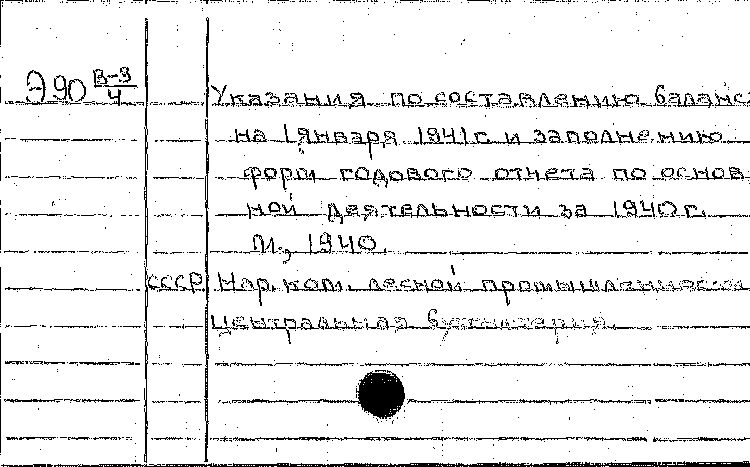 Э90 В-3/4
Указания по составлению баланс
на 1 января 1941 г. и заполнению
форм годового отчета по основ-
ной деятельности за 1940 г.
М., 1940.
СССР. Нар. ком. лесной промышленности
Центральная бухгалтерия.